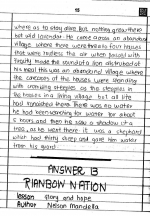 15
where as to stay alive. But nothing grew there
but wild lavender. He came across an abandoned
village where there were five to four houses
that were roofless the air when passed with
the made the sound of a lion disturbed at
his meal this was an abandoned village where
the remains of the houses were standing
with crumbling steeples, as the steeples in
the houses in a living village, but all life
had vanished there. There was no water
he had been searching for water for about
5 hours and then he saw a shadow of a
tree, as he went there it was a shepherd
which had thirty sheep and gave him water
from his gourd.
ANSWER 13
RIANBOW NATION
lesson story and hope
Author Nelson Mandella